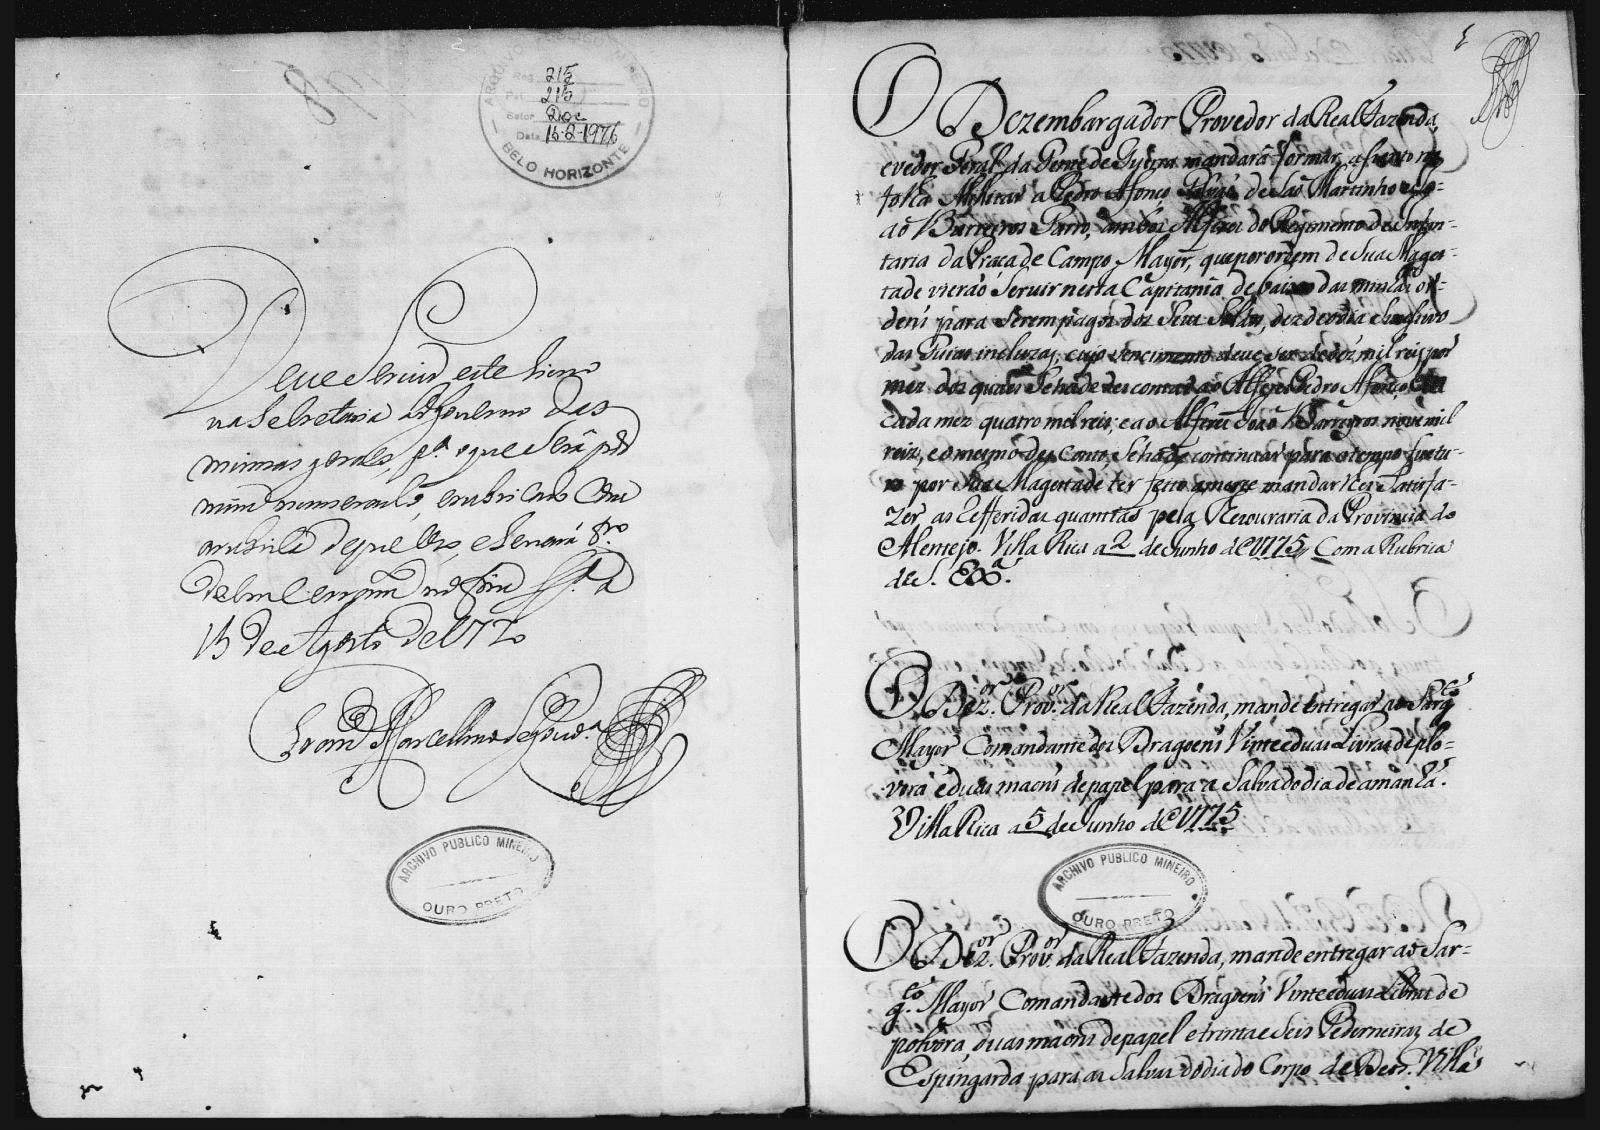 ARQUIVO PUBLICO MINEIRO
Reg. 215
215
Setor Doc
Data 15-2-1976
BELO HORIZONTE
Deve Servir este Livro
na Secretaria do Governo das
minnas geraes, p.ª o que Será por
mim numerado, e rubricado Com
a rubrica de que Uzo, e levará
15 de Agosto de 177
ARCHIVO PUBLICO MINEIRO
OURO PRETO
O Dezembargador Provedor da Real Fazenda,
e vedor Geral da Gente de Guerra mandará formar asento na
folha Militar a Pedro Afonço de Saõ Martinho e Jo-
aõ Barreyros ambos Alferes do Regimento de Infan-
taria da Praca de Campo Mayor, que por ordem de Sua Mages-
tade vieraõ Servir nesta Capitania de baixo das minhas or-
dens para Serem pagos dos Seus Soldos, dez de o dia
das Guias incluzas, cujo vencimento deve ser de dez mil reis por
mez dos quaes Se ha de descontar ao Alferes Pedro Afonço, em
cada mez quatro mil reis; e ao Alferes Joaõ Barreyros nove mil
reis, e o mesmo des Conto, Se ha de continuar para o tempo futu-
ro por Sua Magestade ter feito a merce mandar lhes Satisfa-
zer as refferidas quantias pela Thezouraria da Provincia do
Alentejo. Villa Rica a 2 de Junho de 1775, Com a Rubrica
de S. Ex.ª
O Dez.or Prov.or da Real Fazenda, mande entregar ao Sarg.to
Mayor Comandante dos Dragoens Vinte e duas Livras de polvora
e duas maons de papel para a Salva do dia de amanhã.
Villa Rica a 5 de Junho de 1775
ARCHIVO PUBLICO MINEIRO
OURO PRETO
O Dez.or Prov.or da Real Fazenda, mande entregar ao Sar-
g.to Mayor Comandante dos Dragoens Vinte e duas Libras de
polvora, duas maons de papel e trinta e Seis Pederneiras de
Espingarda para as Salvas do dia do Corpo de Deos. Villa